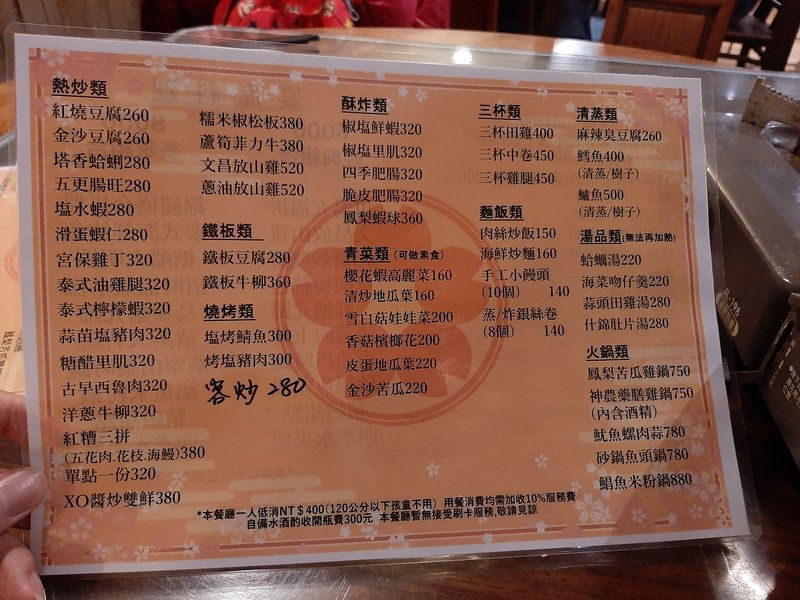 熱炒類
紅燒豆腐260
金沙豆腐260
塔香蛤蜊280
五更腸旺280
塩水蝦280
滑蛋蝦仁280
宮保雞丁320
泰式油雞腿320
泰式檸檬蝦320
蒜苗塩豬肉320
糖醋里肌320
古早西魯肉320
洋蔥牛柳320
紅糟三拼
(五花肉.花枝.海鰻)380
單點一份320
XO醬炒雙鮮380
糯米椒松板380
蘆筍菲力牛380
文昌放山雞520
蔥油放山雞520
鐵板類
鐵板豆腐280
鐵板牛柳360
燒烤類
塩烤鯖魚300
烤塩豬肉300
客炒 280
酥炸類
椒塩鮮蝦320
椒塩里肌320
四季肥腸320
脆皮肥腸320
鳳梨蝦球360
青菜類 (可做素食)
櫻花蝦高麗菜160
清炒地瓜葉160
雪白菇娃娃菜200
香菇檳榔花200
皮蛋地瓜葉220
金沙苦瓜220
三杯類
三杯田雞400
三杯中卷450
三杯雞腿450
麵飯類
肉絲炒飯150
海鮮炒麵160
手工小饅頭
(10個) 140
蒸/炸銀絲卷
(8個) 140
清蒸類
麻辣臭豆腐260
鱈魚400
(清蒸/樹子)
鱸魚500
(清蒸/樹子)
湯品類(無法再加熱)
蛤蠣湯220
海菜吻仔羹220
蒜頭田雞湯280
什錦肚片湯280
火鍋類
鳳梨苦瓜雞鍋750
神農藥膳雞鍋750
(內含酒精)
魷魚螺肉蒜780
砂鍋魚頭鍋780
鯧魚米粉鍋880
*本餐廳一人低消NT$400(120公分以下孩童不用) 用餐消費均需加收10%服務費
自備水酒酌收開瓶費300元 本餐廳暫無接受刷卡服務,敬請見諒